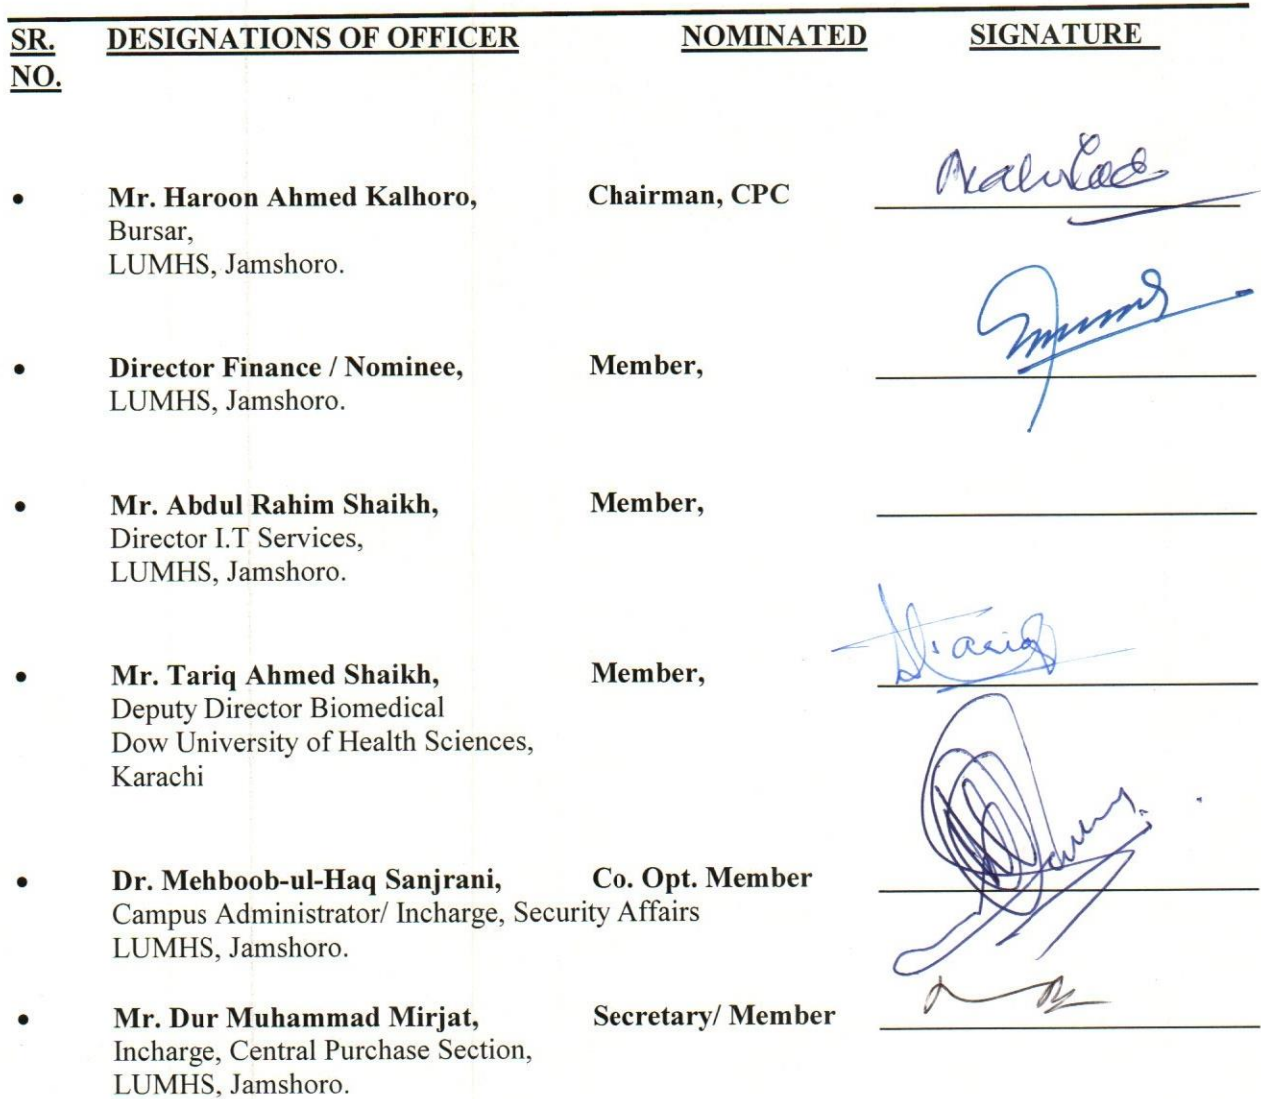 SR. DESIGNATIONS OF OFFICER NOMINATED SIGNATURE
NO.
• Mr. Haroon Ahmed Kalhoro, Chairman, CPC
Bursar,
LUMHS, Jamshoro.
• Director Finance / Nominee, Member,
LUMHS, Jamshoro.
• Mr. Abdul Rahim Shaikh, Member,
Director I.T Services,
LUMHS, Jamshoro.
• Mr. Tariq Ahmed Shaikh, Member,
Deputy Director Biomedical
Dow University of Health Sciences,
Karachi
• Dr. Mehboob-ul-Haq Sanjrani, Co. Opt. Member
Campus Administrator/ Incharge, Security Affairs
LUMHS, Jamshoro.
• Mr. Dur Muhammad Mirjat, Secretary/ Member
Incharge, Central Purchase Section,
LUMHS, Jamshoro.